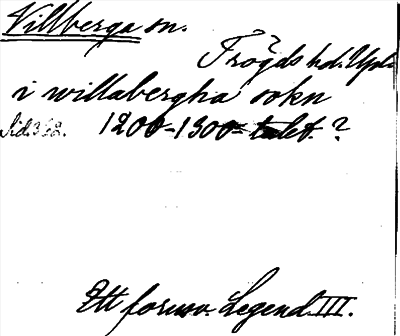 Villberga sn.
Trögds hd. Upl.
i willabergha sokn
Sid. 362. 1200-1300-talet. ?
Ett fornsv. Legend. III.